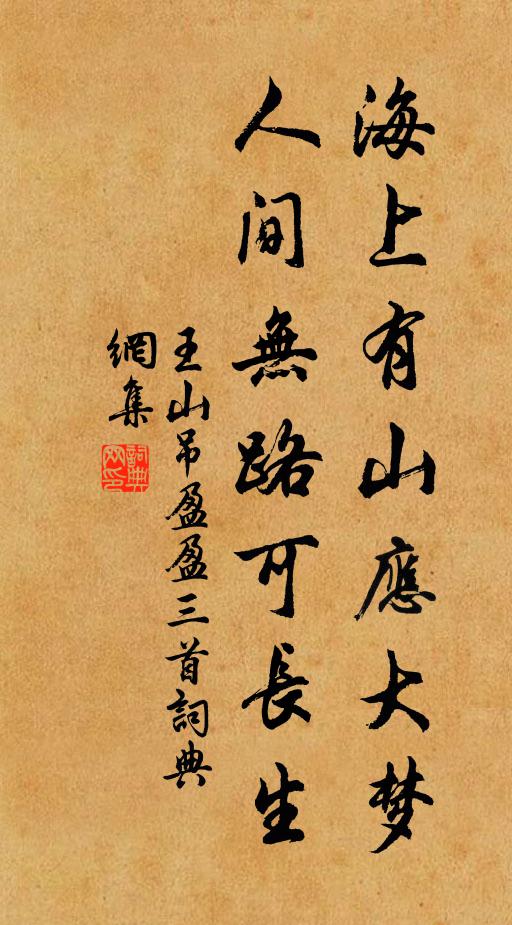 海上有山應大梦
人间無路可長生
王山吊盈盈三首詞典
網集
詞典網印